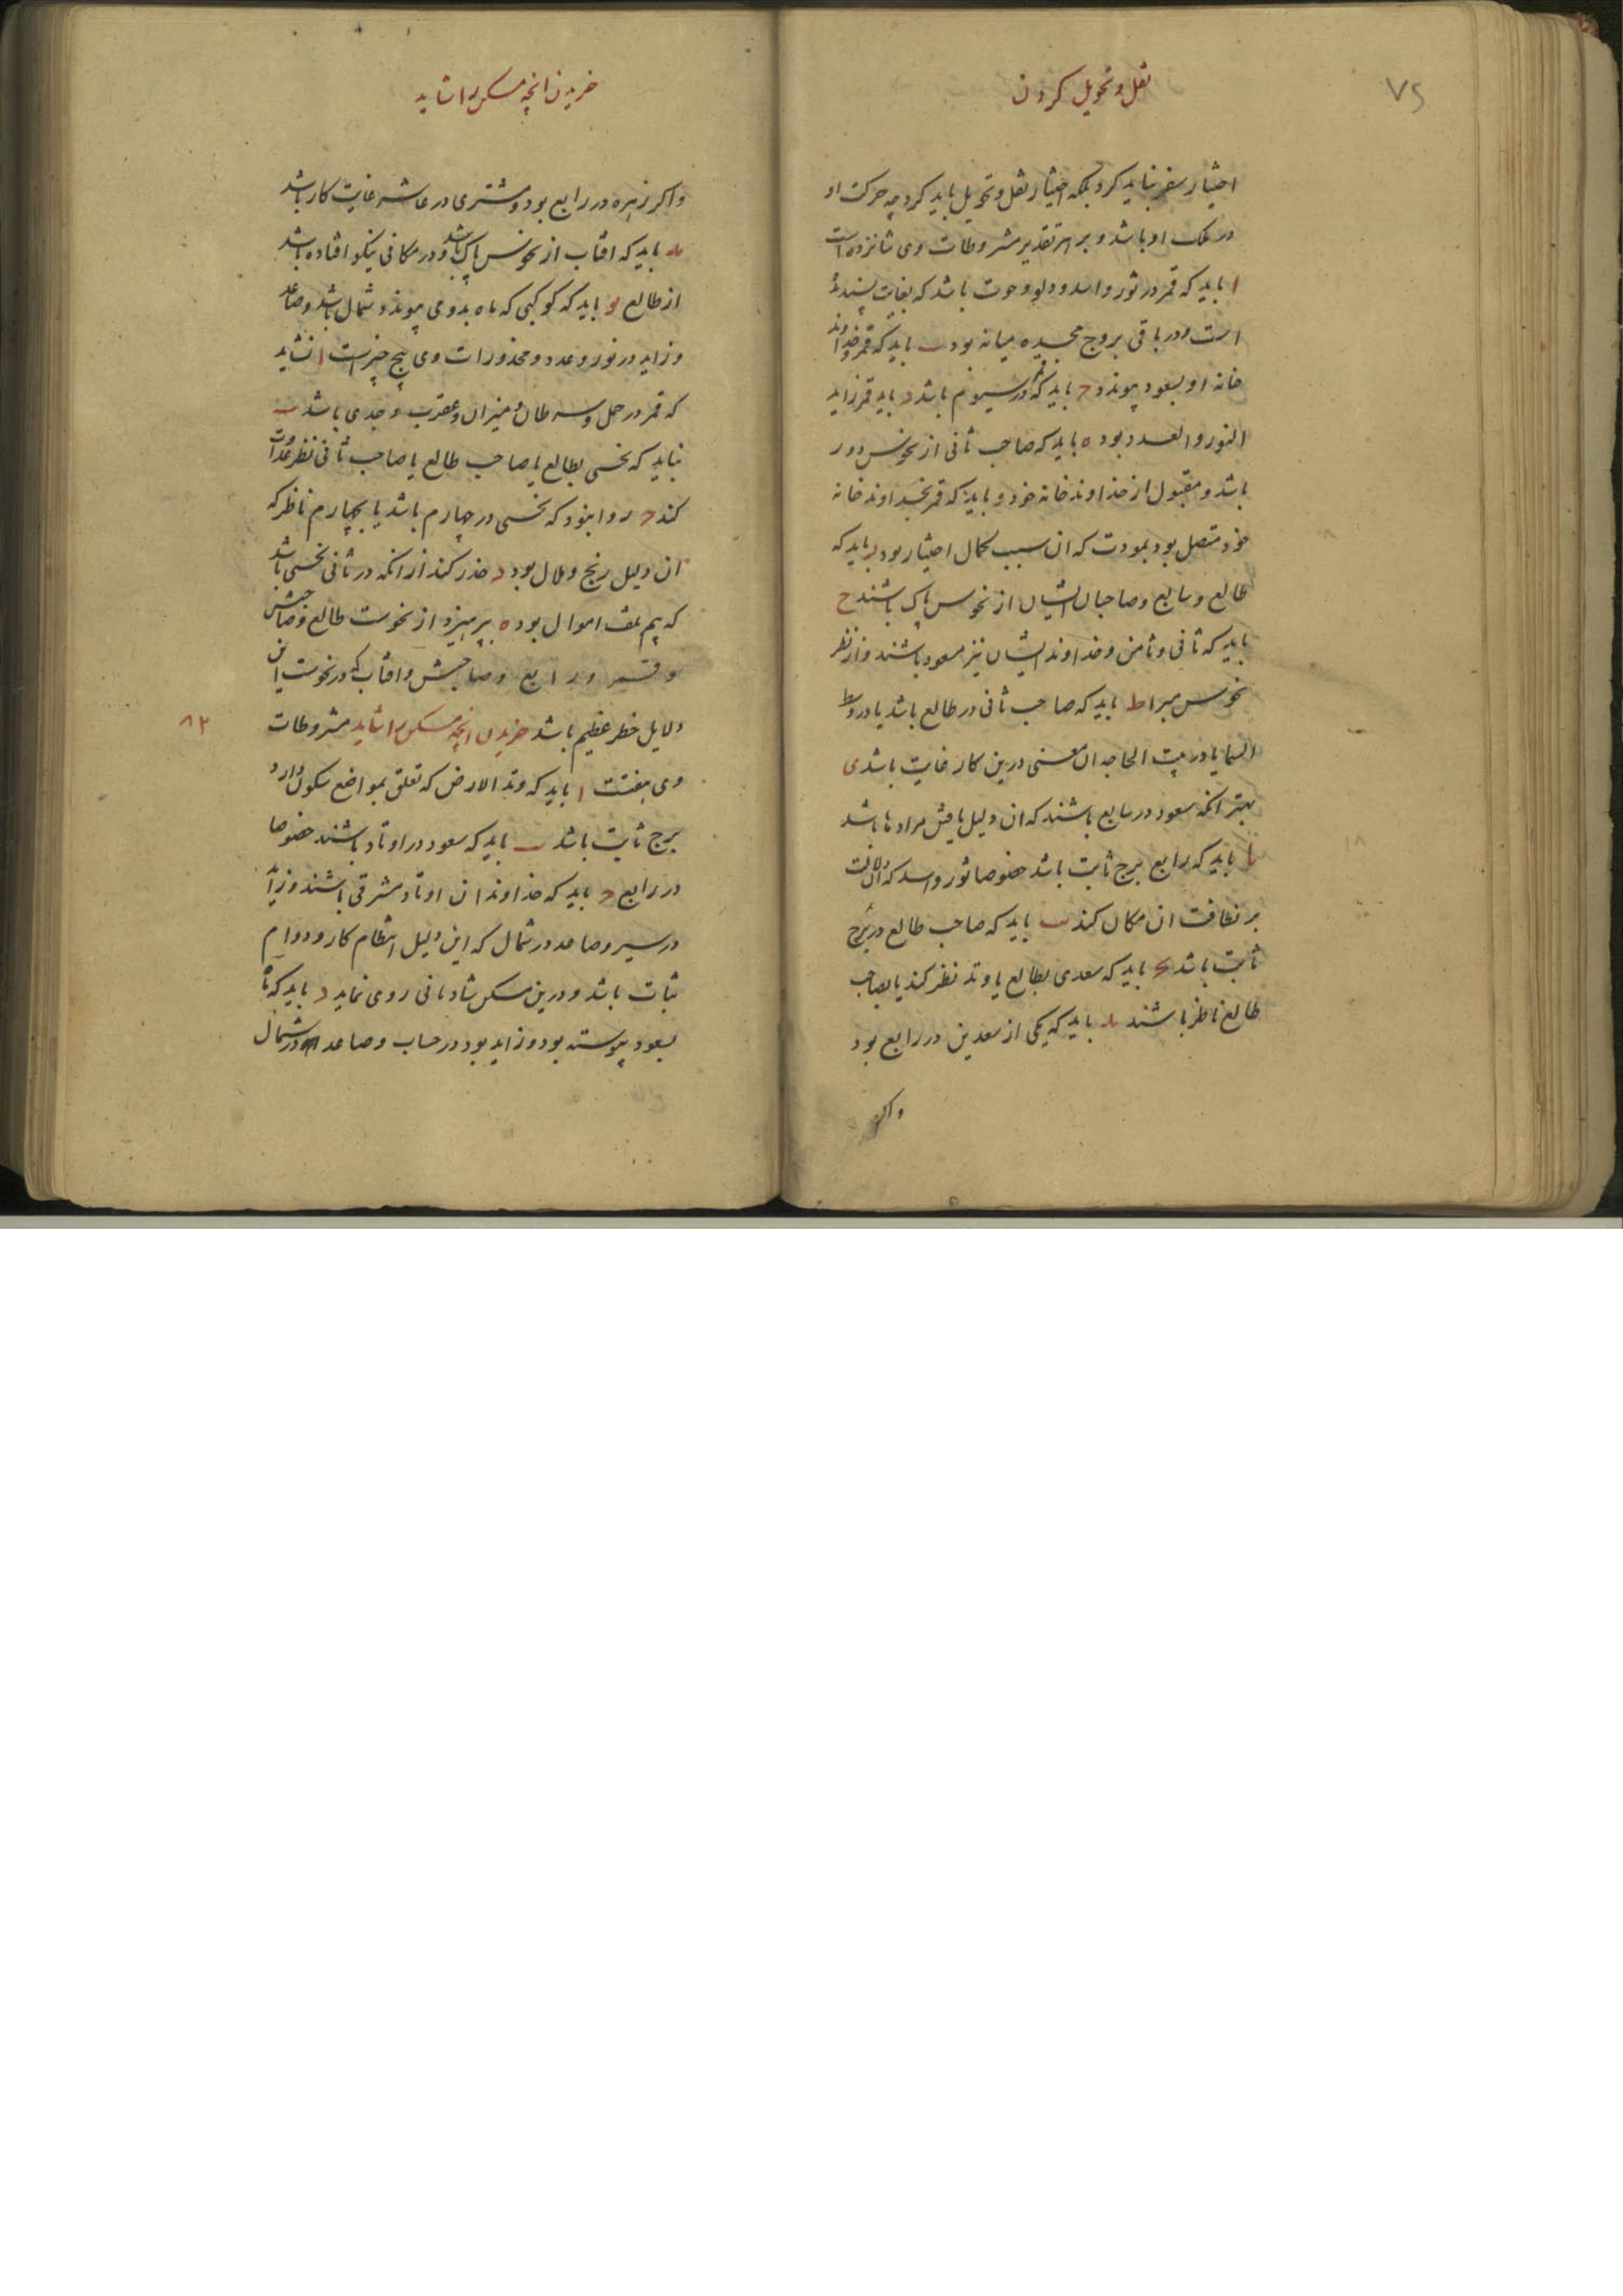 ٧٥
نقل و تحویل کردن
اختیار سفر نباید کرد بلکه اختیار نقل و تحویل باید کرد چه حرکت او
در ملک او باشد و بر هر تقدیر مشروطات وی شانزده است
ا باید که قمر در ثور و اسد و دلو و حوت باشد که بغایت پسندیده
است و در باقی بروج میانه بود ب باید که قمر و خداوند
خانه او بسعود پیوندد ج باید که قمر در سیوم باشد د باید قمر زاید
النور و العدد بود ه باید که صاحب ثانی از نحوس دور
باشد و مقبول از خداوند خانه خود و باید که قمر بخداوند خانه
خود متصل بود بمودت که ان سبب کمال اختیار بود ز باید که
طالع و سابع و صاحبان ایشان از نحوس پاک باشند ح
باید که ثانی و ثامن و خداوند ایشان نیز مسعود باشند و از نظر
نحوس مبرا ط باید که صاحب ثانی در طالع باشد یا در وسط
السما یا در بیت الحاجه ان معنی درین کار غایت باشد ی
بهتر انکه سعود در سابع باشند که ان دلیل یافتن مرادها باشد
یا باید که رابع برج ثابت باشد خصوصا ثور و اسد که ان دلالت
بر نظافت ان مکان کند یب باید که صاحب طالع در برج
ثابت باشد یج باید که سعدی بطالع یا وتد نظر کند یا بصاحب
طالع ناظر باشند ید باید که یکی از سعدین در رابع بود
و اکر
خریدن انچه مسکن را شاید
و اکر زهره در رابع بود و مشتری در عاشر غایت کار باشد
یه باید که افتاب از نحوس پاک باشد و در مکانی نیکو افتاده باشد
از طالع یو باید که کوکبی که ماه بدو می پیوندد شمال باشد و صاعد
و زاید در نور و عدد و محذورات وی پنج چیز است ا نشاید
که قمر در حمل و سرطان و میزان و عقرب و جدی باشد ب
نباید که نحسی بطالع یا صاحب طالع یا صاحب ثانی نظر عداوت
کند ج روا نبود که نحسی در چهارم باشد یا بچهارم ناظر که
ان دلیل رنج و ملال بود د حذر کند از انکه در ثانی نحسی باشد
که بیم تلف اموال بود ه بپرهیزد از نحوست طالع و صاحبش
و قمر و رابع و صاحبش و افتاب که در نحوست این
دلایل خطر عظیم باشد خریدن انچه مسکن را شاید مشروطات
٨٢
وی هفتست ا باید که وتد الارض که تعلق بمواضع سکون دارد
برج ثابت باشد ب باید که سعود در اوتاد باشند خصوصا
در رابع ج باید که خداوندان اوتاد مشرقی باشند و زاید
در سیر و صاعد در شمال که این دلیل انتظام کار و دوام
ثبات باشد و درین مسکن شادمانی روی نماید د باید که ماه
بسعود پیوسته بود و زاید بود در حساب و صاعد در شمال